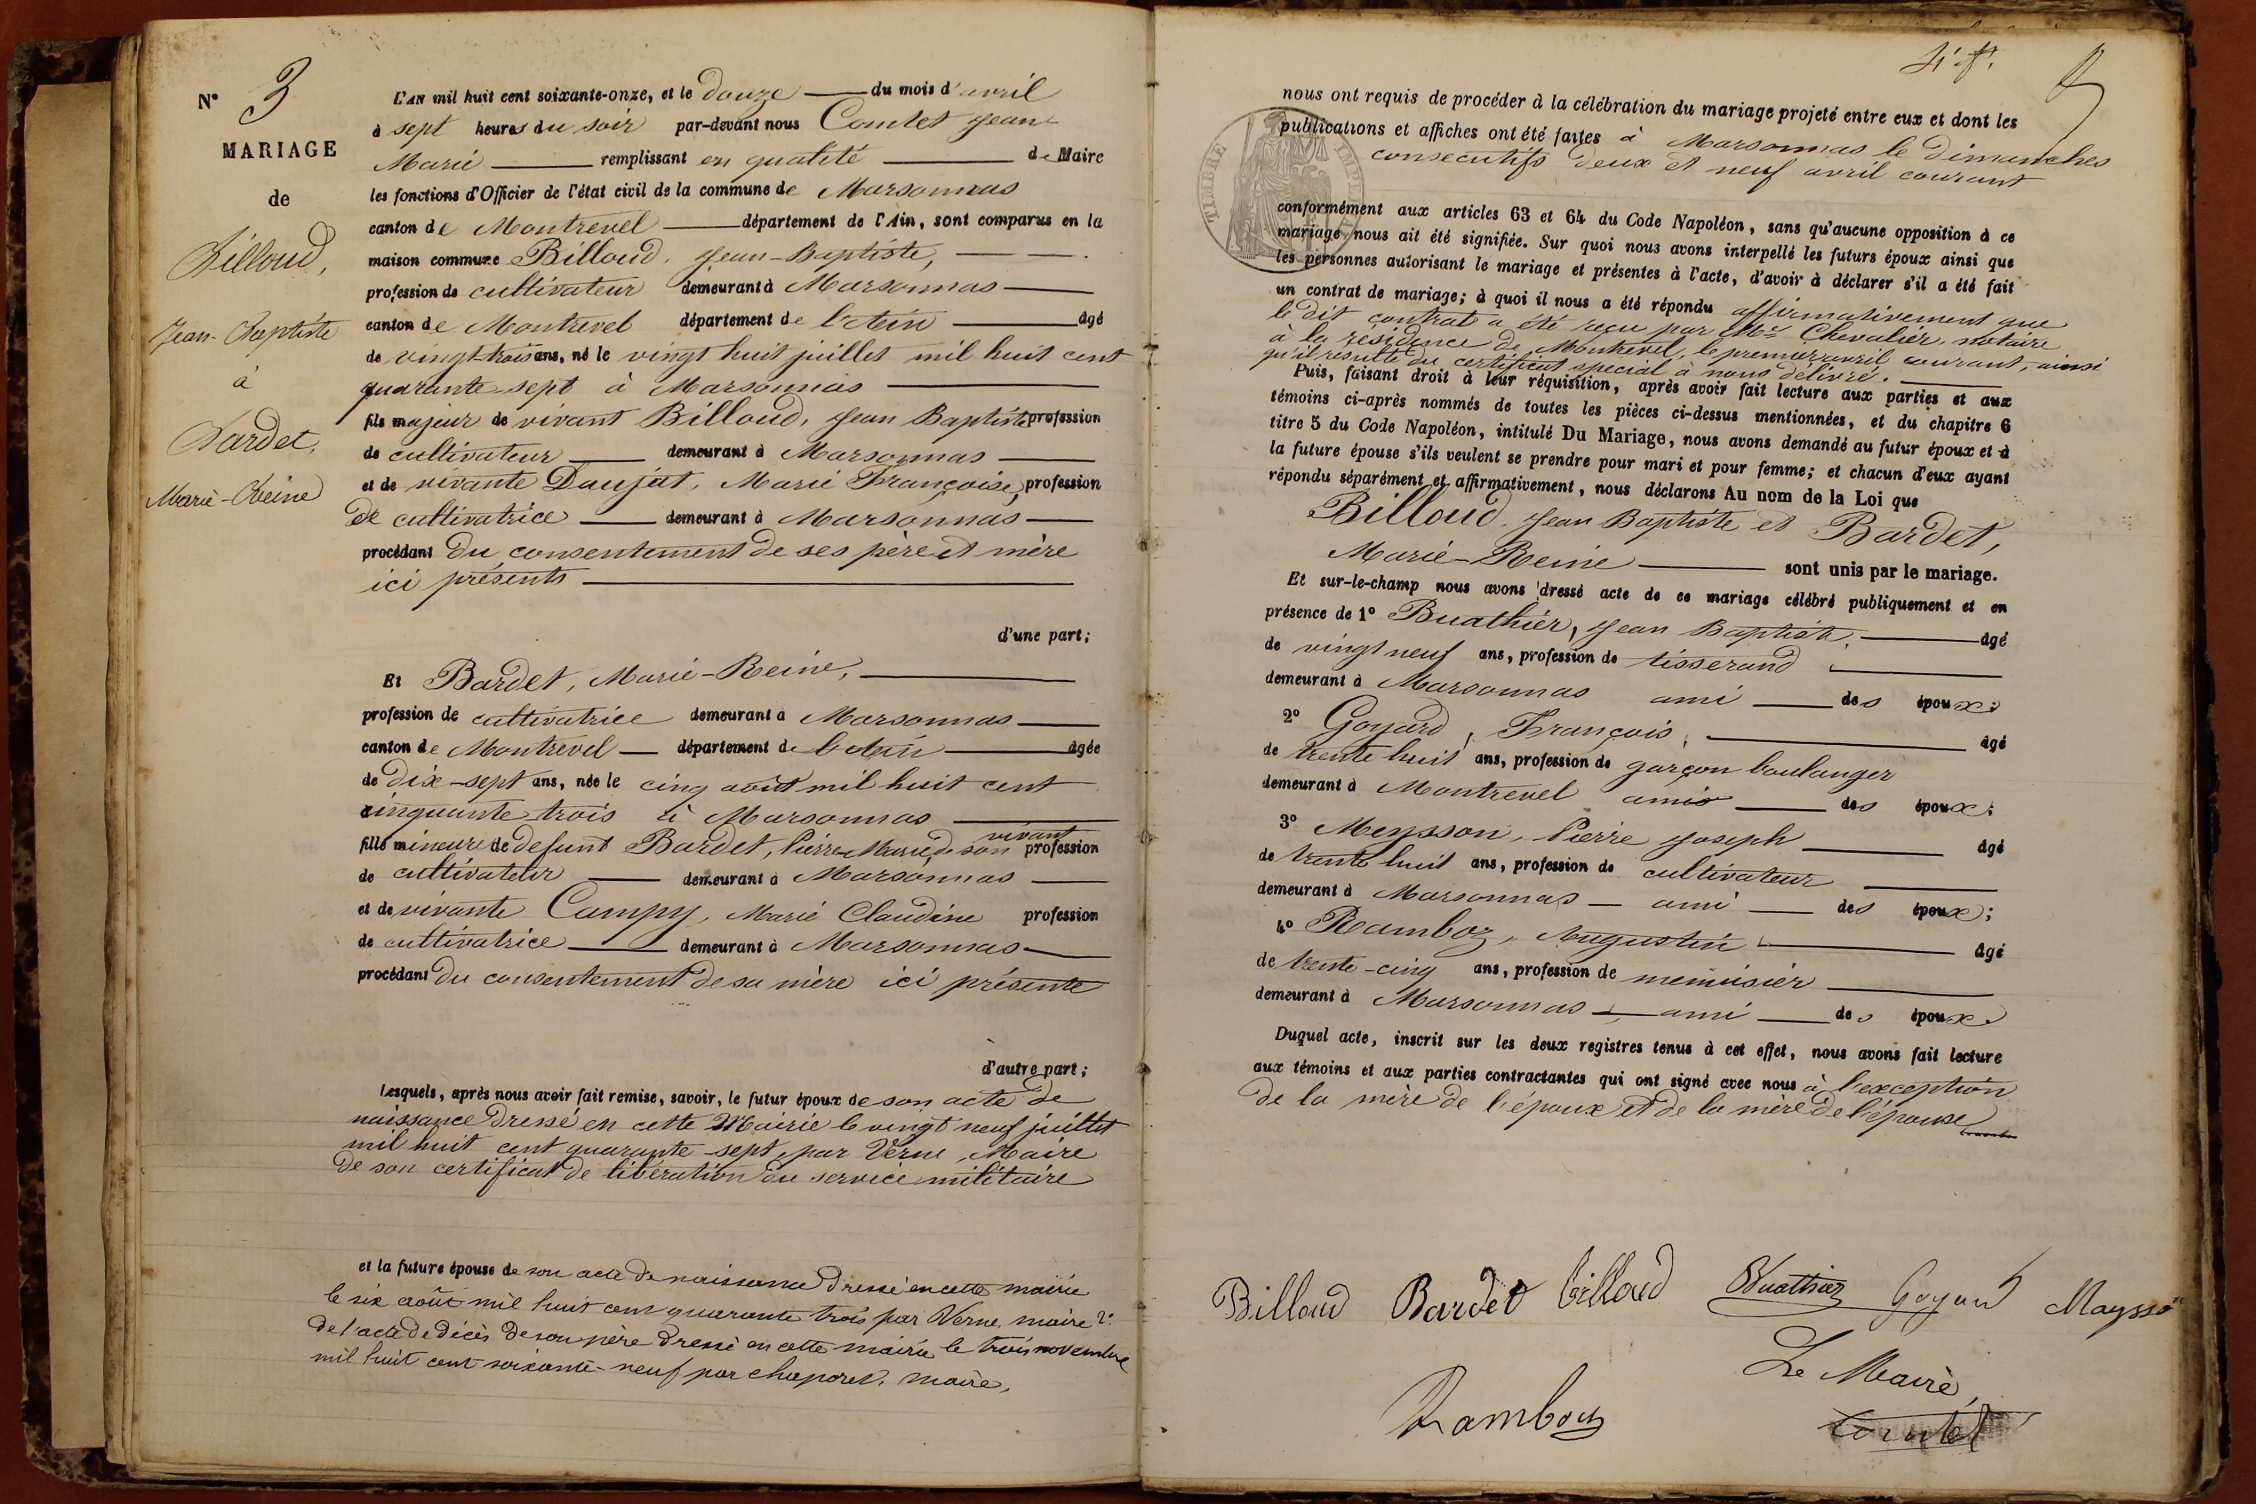 N° 3
MARIAGE
de
Billoud,
Jean-Baptiste
à
Bardet,
Marie-Reine
L'AN mil huit cent soixante-onze, et le douze du mois d'avril
à sept heures du soir par-devant nous Comtet Jean
Marie remplissant en qualité de Maire
les fonctions d'Officier de l'état civil de la commune de Marsonnas
canton de Montrevel département de l'Ain, sont comparus en la
maison commune Billoud, Jean-Baptiste,
profession de cultivateur demeurant à Marsonnas
canton de Montrevel département de l'Ain âgé
de vingt-trois ans, né le vingt huit juillet mil huit cent
quarante sept à Marsonnas
fils majeur de vivant Billoud, Jean Baptiste profession
de cultivateur demeurant à Marsonnas
et de vivante Daujat, Marie Françoise, profession
de cultivatrice demeurant à Marsonnas
procédant du consentement de ses père et mère
ici présents
d'une part;
Et Bardet, Marie-Reine,
profession de cultivatrice demeurant à Marsonnas
canton de Montrevel département de l'Ain âgée
de dix-sept ans, née le cinq août mil huit cent
cinquante trois à Marsonnas
vivant
fille mineure de defunt Bardet, Pierre-Marie, de son profession
de cultivateur demeurant à Marsonnas
et de vivante Campy, Marie Claudine profession
de cultivatrice demeurant à Marsonnas
procédant du consentement de sa mère ici présente
d'autre part;
Lesquels, après nous avoir fait remise, savoir, le futur époux de son acte de
naissance dressé en cette Mairie le vingt neuf juillet
mil huit cent quarante-sept, par Verne, Maire
de son certificat de libération du service militaire
et la future épouse de son acte de naissance dressé en cette mairie
le six août mil huit cent quarante trois par Verne, maire 2°
de l'acte de décès de son père dressé en cette mairie le trois novembre
mil huit cent soixante-neuf par Chaporel, maire,
nous ont requis de procéder à la célébration du mariage projeté entre eux et dont les
publications et affiches ont été faites à Marsonnas le dimanches
consecutifs deux et neuf avril courant
TIMBRE IMPÉRIAL
conformément aux articles 63 et 64 du Code Napoléon, sans qu'aucune opposition à ce
mariage nous ait été signifiée. Sur quoi nous avons interpellé les futurs époux ainsi que
les personnes autorisant le mariage et présentes à l'acte, d'avoir à déclarer s'il a été fait
un contrat de mariage; à quoi il nous a été répondu affirmativement que
le dit contrat a été reçu par Me Chevalier, notaire
à la résidence de Montrevel, le premier avril courant, ainsi
qu'il résulte du certificat spécial à nous délivré.
Puis, faisant droit à leur réquisition, après avoir fait lecture aux parties et aux
témoins ci-après nommés de toutes les pièces ci-dessus mentionnées, et du chapitre 6
titre 5 du Code Napoléon, intitulé Du Mariage, nous avons demandé au futur époux et à
la future épouse s'ils veulent se prendre pour mari et pour femme; et chacun d'eux ayant
répondu séparément et affirmativement, nous déclarons Au nom de la Loi que
Billoud, Jean Baptiste et Bardet,
Marie-Reine sont unis par le mariage.
Et sur-le-champ nous avons dressé acte de ce mariage célébré publiquement et en
présence de 1° Buathier, Jean Baptiste, âgé
de vingt neuf ans, profession de tisserand
demeurant à Marsonnas ami des époux;
2° Goyard, François, âgé
de trente huit ans, profession de garçon boulanger
demeurant à Montrevel amis des époux;
3° Meysson, Pierre Joseph âgé
de trente huit ans, profession de cultivateur
demeurant à Marsonnas ami des époux;
4° Ramboz, Augustin âgé
de trente-cinq ans, profession de menuisier
demeurant à Marsonnas, ami des époux
Duquel acte, inscrit sur les deux registres tenus à cet effet, nous avons fait lecture
aux témoins et aux parties contractantes qui ont signé avec nous à l'exception
de la mère de l'époux et de la mère de l'épouse
Billoud Bardet billoud Buathier Goyard Maysson
Le Maire,
Ramboz
Comtet